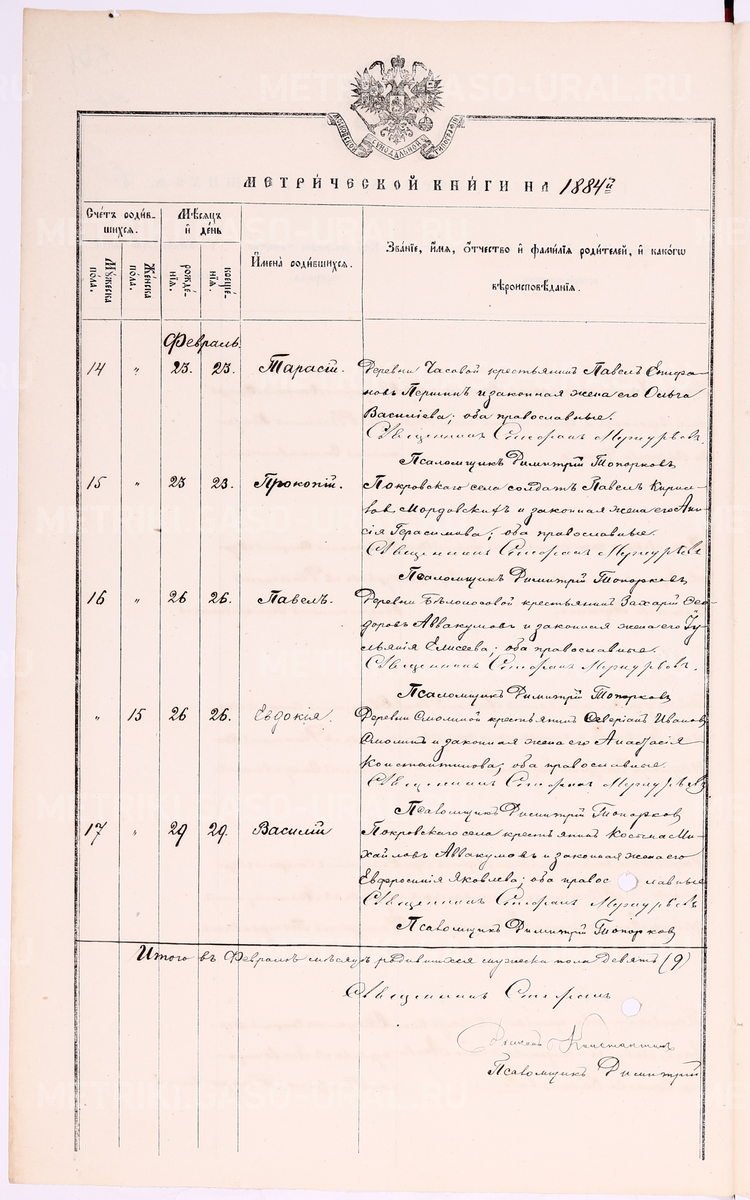 МОСКОВСКОЙ СѴНОДАЛЬНОЙ ТИПОГРАФІИ
МЕТРИ́ЧЕСКОЙ КНИ́ГИ НА 1884й
Счетъ роди́в-
шихся.
Мѣсяцъ
и день
Имена̀ роди́вшихся.
Зва́ніе, и́мя, о́тчество и фами́лія роди́телей, и како́гѡ
вѣроисповѣ́данія.
Му́жеска
по́ла.
Же́нска
по́ла.
рожде́-
нія.
креще́-
нія.
Февраль.
14 „ 23. 23. Тарасій. Деревни Часовой крестьянинъ Павелъ Епифа-
новъ Першинъ и законная жена его Ольга
Василіева; оба православные.
Священникъ Стефанъ
Псаломщикъ Димитрій Топорковъ
15 „ 23 23. Прокопій. Покровскаго села солдатъ Павелъ Кирил-
ловъ Мордовскихъ и законная жена его Ани-
сія Герасимова; оба православные.
Священникъ Стефанъ
Псаломщикъ Димитрій Топорковъ
16 „ 26 26. Павелъ. Деревни Бѣлоносовой крестьянинъ Захарій Ѳео-
доровъ Аввакумовъ и законная жена его Іу-
льянія Елисеева; оба православные.
Священникъ Стефанъ
Псаломщикъ Димитрій Топорковъ
„ 15 26 26. Евдокія. Деревни Смолиной крестьянинъ Северіанъ Ивановъ
Смолинъ и законная жена его Анастасія
Константинова; оба православные.
Священникъ Стефанъ
Псаломщикъ Димитрій Топорковъ
17 „ 29 29. Василій Покровскаго села крестьянинъ Косьма Ми-
хайловъ Аввакумовъ и законная жена его
Евфросинія Яковлева; оба православные
Священникъ Стефанъ
Псаломщикъ Димитрій Топорковъ
Итого въ Февралѣ мѣсяцѣ родившихся мужеска пола девять (9)
Священникъ Стефанъ
Константинъ
Псаломщикъ Димитрій